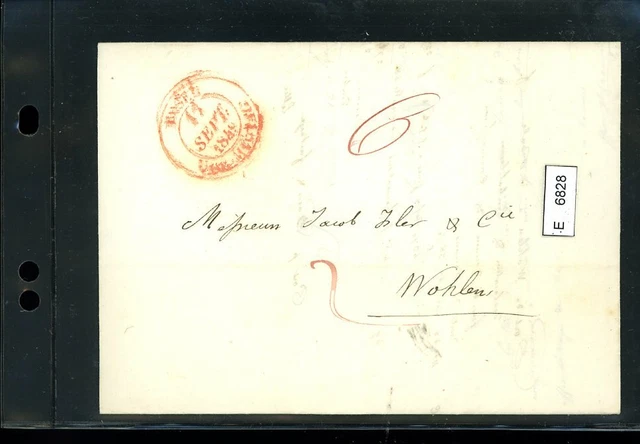 11
SEPT.
6
Messieurs Jacob Isler & Cie
Wohlen
E 6828